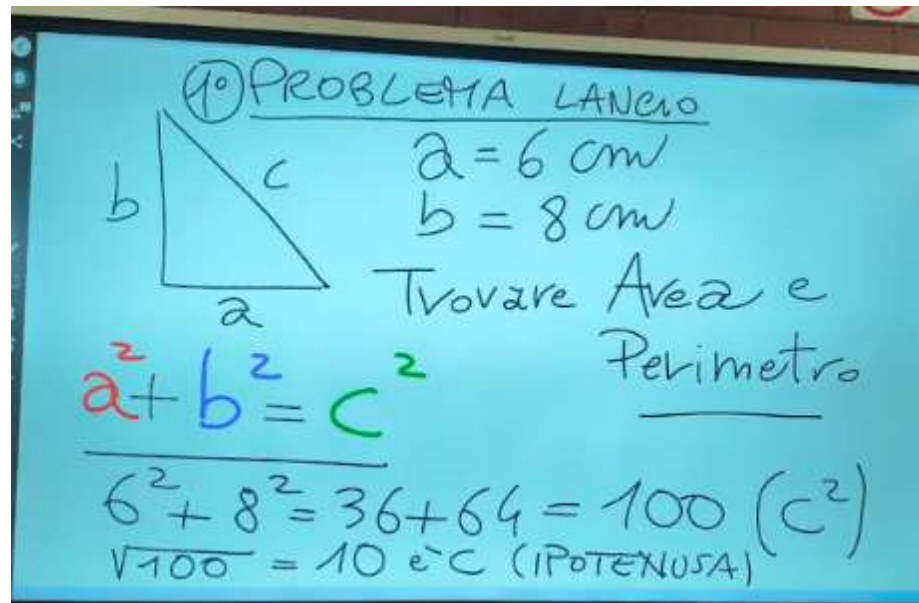 1° PROBLEMA LANCIO
b c a = 6 cm
b = 8 cm
a Trovare Area e
Perimetro
a² + b² = c²
6² + 8² = 36 + 64 = 100 (c²)
√100 = 10 è C (IPOTENUSA)